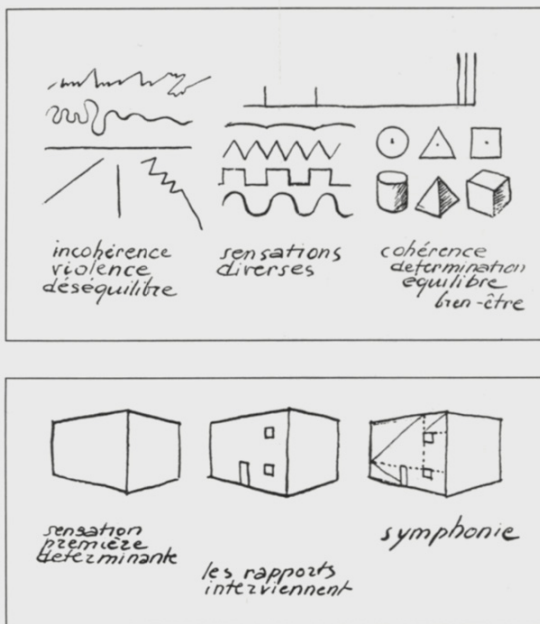 incohérence
violence
déséquilibre
sensations
diverses
cohérence
determination
équilibre
bien-être
sensation
première
determinante
les rapports
interviennent
symphonie